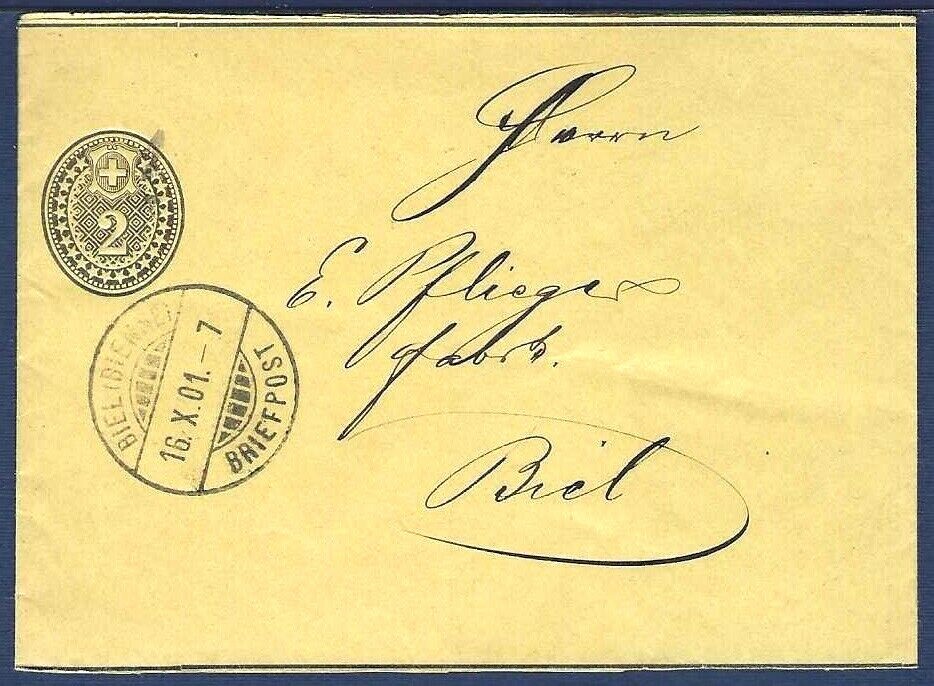 2
Herrn
E. Pflieger
fabrt.
Biel
BIEL (BIENNE)
16.X.01.-7
BRIEFPOST